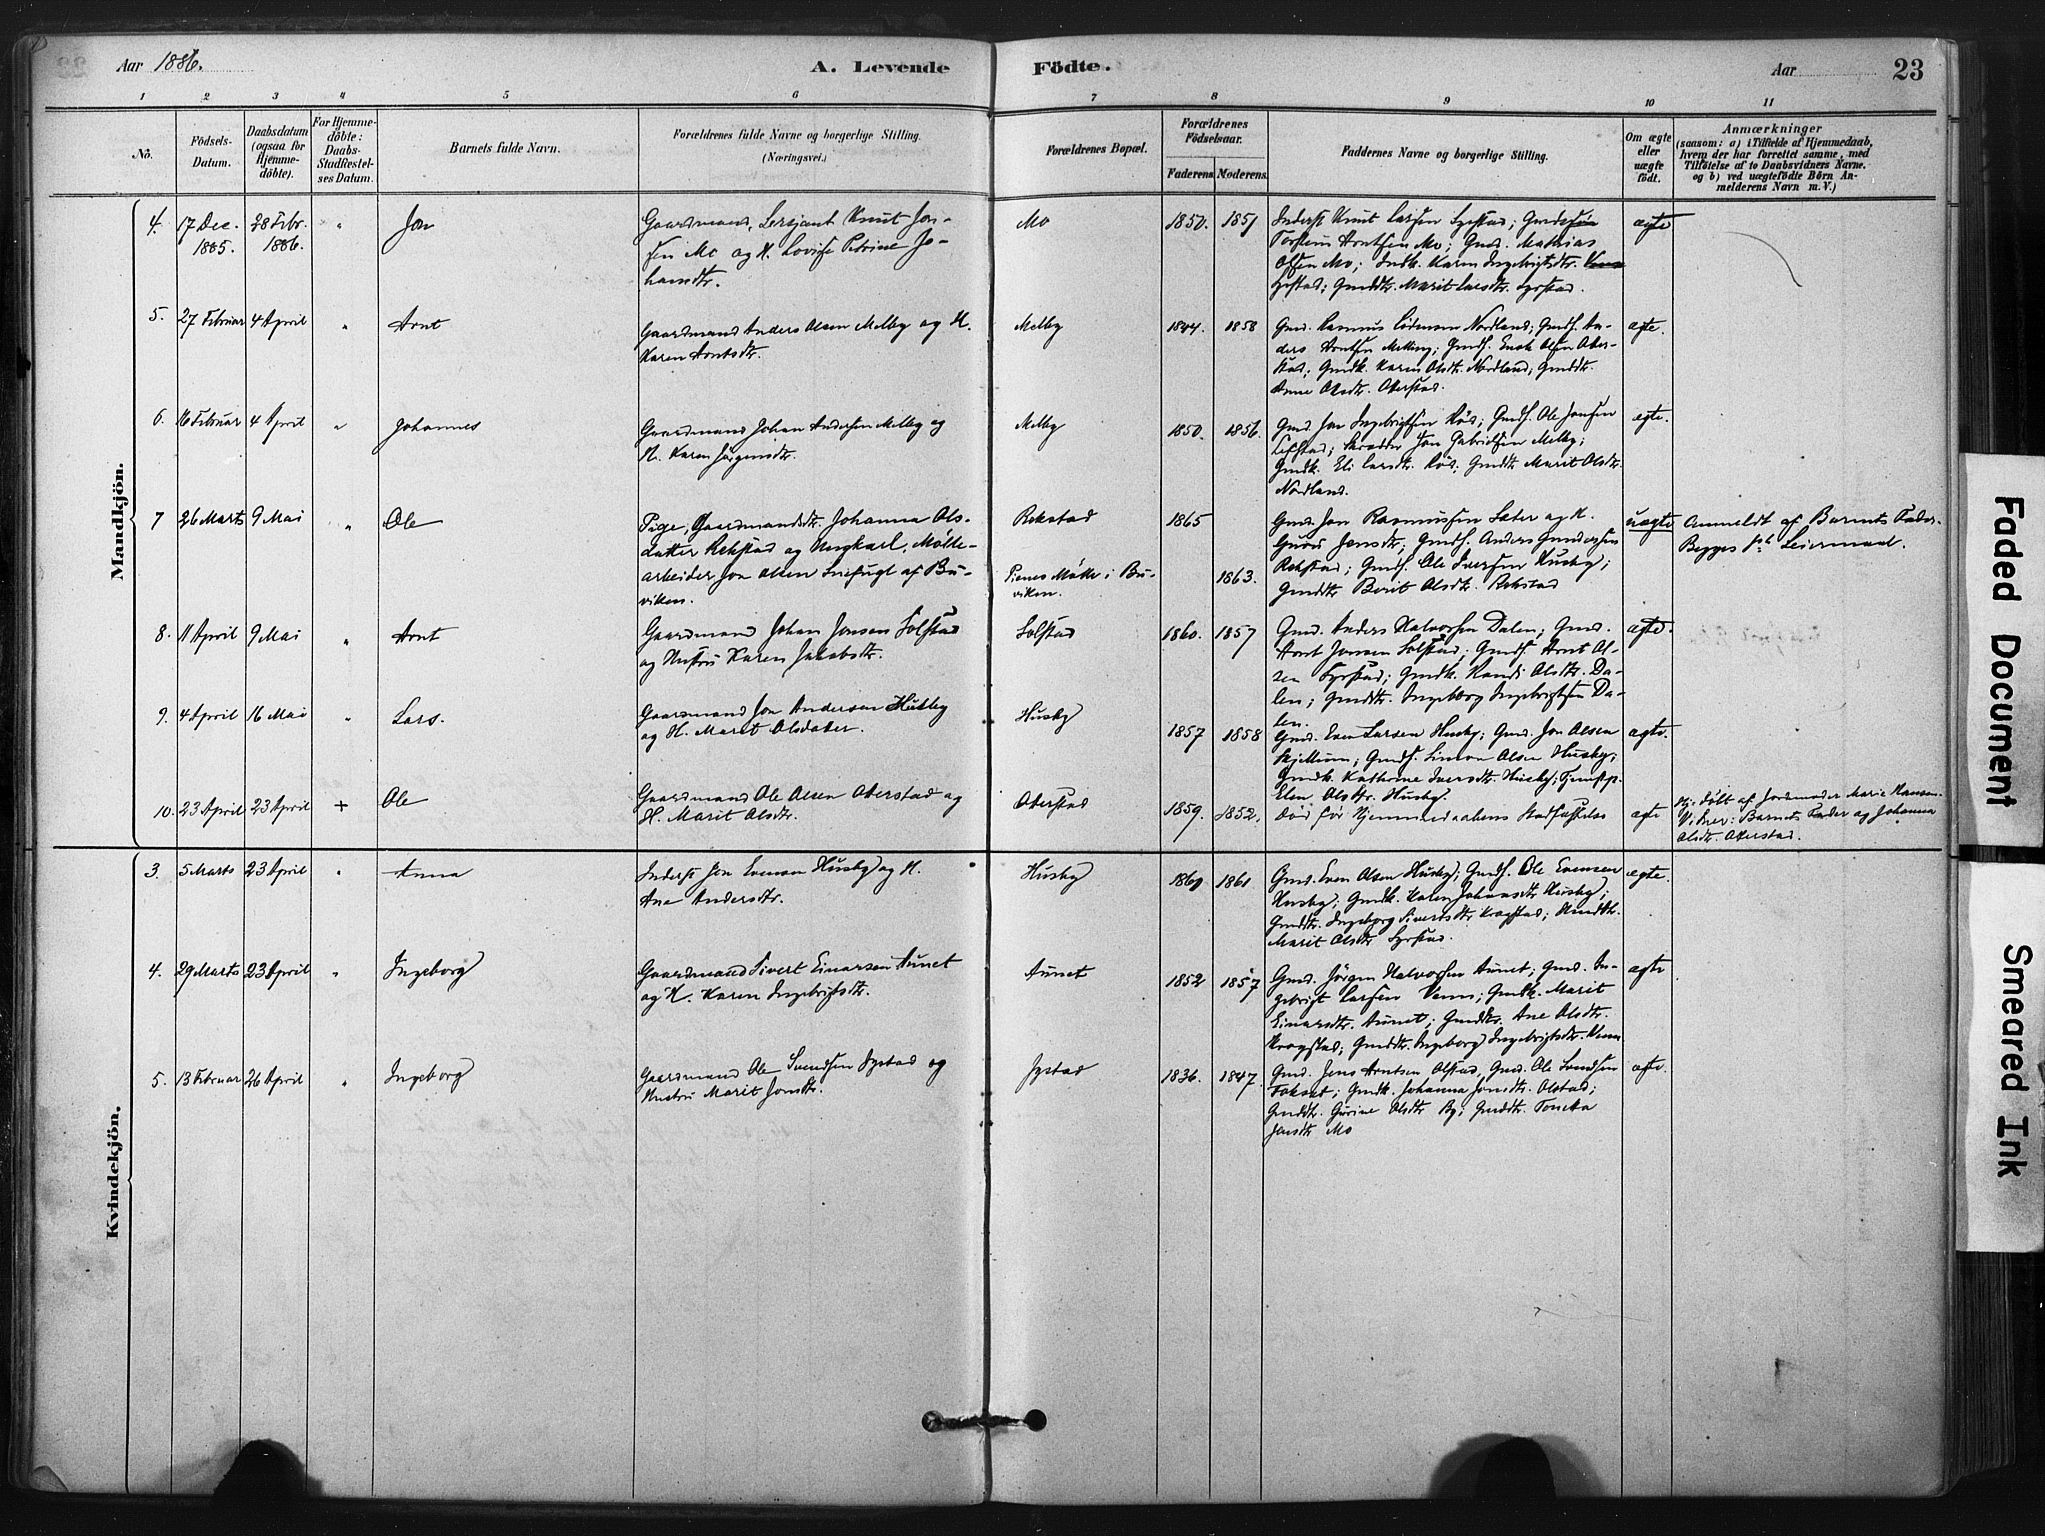 Aar 1886.
A. Levende Födte.
Aar
23
1 2 3 4 5 6 7 8 9 10 11
No.
Födsels-
Datum.
Daabsdatum
(ogsaa for
Hjemme-
döbte).
For Hjemme-
döbte:
Daabs-
Stadfæstel-
ses Datum.
Barnets fulde Navn.
Forældrenes fulde Navne og borgerlige Stilling.
(Næringsvei.)
Forældrenes Bopæl.
Forældrenes
Födselsaar.
Faderens
Moderens.
Faddernes Navne og borgerlige Stilling.
Om ægte
eller
uægte
födt.
Anmærkninger
(saasom: a) i Tilfælde af Hjemmedaab,
hvem der har forrettet samme, med
Tilföielse af to Daabsvidners Navne.
og b) ved uægtefödte Börn An-
melderens Navn m. V.)
Mandkjön.
4. 17 Dec. 1885. 28 Febr. 1886. " Jon
Gaardmand, Sersjant Knut Jon-
sen Mo og H. Lovise Petrine Jo-
hansdtr.
Mo 1850. 1851
Inderst Knut Larsen Syrstad; Gmdssön
Torstein Arntsen Mo; Gmd. Mathias
Olsen Mo; Indk. Karen Ingebrigtsdtr.
Syrstad; Gmddtr. Marit Larsdtr. Syrstad.
ægte
5. 27 Februar 4 April " Arnt
Gaardmand Anders Olsen Melby og H.
Karen Arntsdtr.
Melby 1844. 1858
Gmd. Rasmus Nordland; Gmds. An-
ders Arntsen Melby; Gmds. Enok Olsen Aker-
stad; Gmdk. Karen Olsdtr. Nordland; Gmddtr.
Anne Olsdtr. Akerstad.
ægte.
6. 16 Februar 4 April " Johannes
Gaardmand Johan Andersen Melby og
H. Karen Jörgensdtr.
Melby 1850. 1856
Gmd. Jon Ingebrigtsen Rös; Gmds. Ole Jonsen
Skrædder Jon Gabrielsen Melby;
Gmdk. Eli Larsdtr. Rös; Gmddtr Marit Olsdtr.
Nordland.
ægte.
7 26 Marts 9 Mai " Ole
Pige, Gaardmandsdtr. Johanna Ols-
datter Rekstad og Ungkarl, Mölle-
arbeider Jon Olsen Snefugl af Bu-
viken.
Rekstad
Pienes Mölle i Bu-
viken.
1865
1863.
Gmd. Jon Rasmussen Sæter og H.
Guru Jonsdtr; Gmds. Anders Gundersen
Rekstad; Gmds. Ole Iversen Husby;
Gmddtr Berit Olsdtr. Rekstad
uægte
Anmeldt af Barnets Fader.
Begges 1ste Leiermaal.
8. 11 April 9 Mai " Arnt
Gaardmand Johan Jonsen Solstad
og Hustru Karen Jakobsdtr.
Solstad 1860. 1857
Gmd. Anders Halvorsen Dalen; Gmd.
Arnt Jonsen Solstad; Gmds. Arnt Ol-
sen Syrstad; Gmdk. Randi Olsdtr. Da-
len; Gmddtr. Ingeborg Ingebrigtsen Da-
len.
ægte.
9. 4 April 16 Mai " Lars.
Gaardmand Jon Andersen Husby
og H. Marit Olsdatter.
Husby 1857 1858
Gmd. Even Larsen Husby; Gmd. Jon Olsen
Skjetlum; Gmds. Simon Olsen Husby;
Gmdk. Kathrine Iversdtr. Husby; Tjenstep.
Elen Olsdtr. Husby.
ægte.
10. 23 April 23 April + Ole
Gaardmand Ole Olsen Akerstad og
H. Marit Olsdtr.
Akerstad 1859. 1852.
Död för Hjemmedaabens Stadfæstelse
ægte
Hj. döbt af Jordmoder Marie Hansen.
Vidner: Barnets Fader og Johanna
Olsdtr. Akerstad.
Kvindekjön.
3. 5 Marts 23 April " Anna
Inderst Jon Evensen Husby og H.
Ane Andersdtr.
Husby 1860 1861
Gmd. Even Olsen Husby; Gmds. Ole Evensen
Husby; Gmdk. Karen Johansdtr Husby;
Gmddtr. Ingeborg Sivertsdtr Kragstad; Gmddtr.
Marit Olsdtr Syrstad.
ægte.
4. 29 Marts 23 April " Ingeborg
Gaardmand Sivert Einarsen Aunet
og H. Karen Ingebrigtsdtr.
Aunet 1852 1857
Gmd. Jörgen Halvorsen Aunet; Gmd. In-
gebrigt Larsen Venn; Gmdk. Marit
Einarsdtr. Aunet; Gmddtr. Ane Olsdtr.
Kragstad; Gmddtr. Ingeborg Ingebrigtsdtr. Venn
ægte
5. 13 Februar 26 April " Ingeborg
Gaardmand Ole Svendsen Jystad og
Hustru Marit Jonsdtr.
Jystad 1836. 1847.
Gmd. Jens Arntsen Olstad, Gmd. Ole Svendsen
Gmdk. Johanna Jonsdtr. Olstad;
Gmddtr. Gurine Olsdtr By; Gmddtr. Tonetta
Jonsdtr Mo
ægte.
Faded Document
Smeared Ink